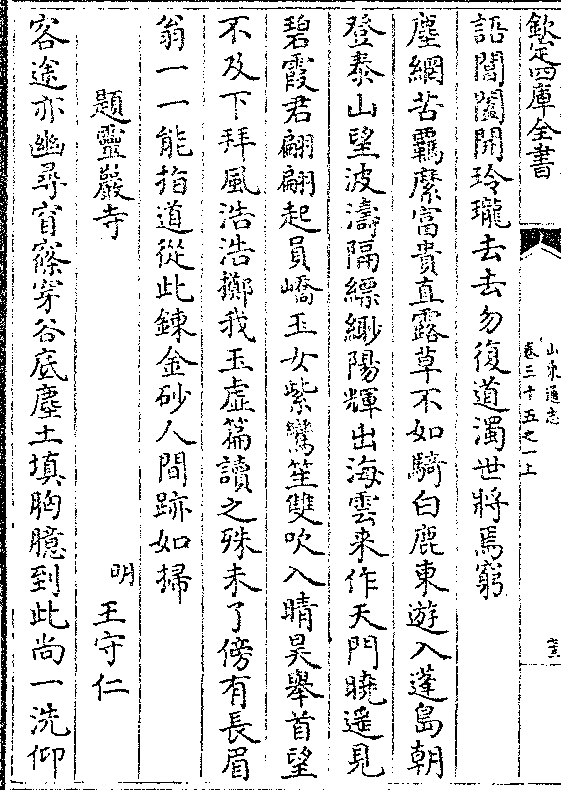 欽定四庫全書
山東通志
卷三十五之一上
語閶闔開玲瓏去去勿復道濁世將焉窮
塵網苦羈縻富貴直露草不如騎白鹿東遊入蓬島朝
登泰山望波濤隔縹緲陽輝出海雲来作天門曉遥見
碧霞君翩翩起員嶠玉女紫鸞笙雙吹入晴昊舉首望
不及下拜風浩浩擲我玉虚篇讀之殊未了傍有長眉
翁一一能指道從此鍊金砂人間跡如掃
題靈巖寺
明 王守仁
客途亦幽尋窅窱穿谷底塵土填胸臆到此尚一洗仰